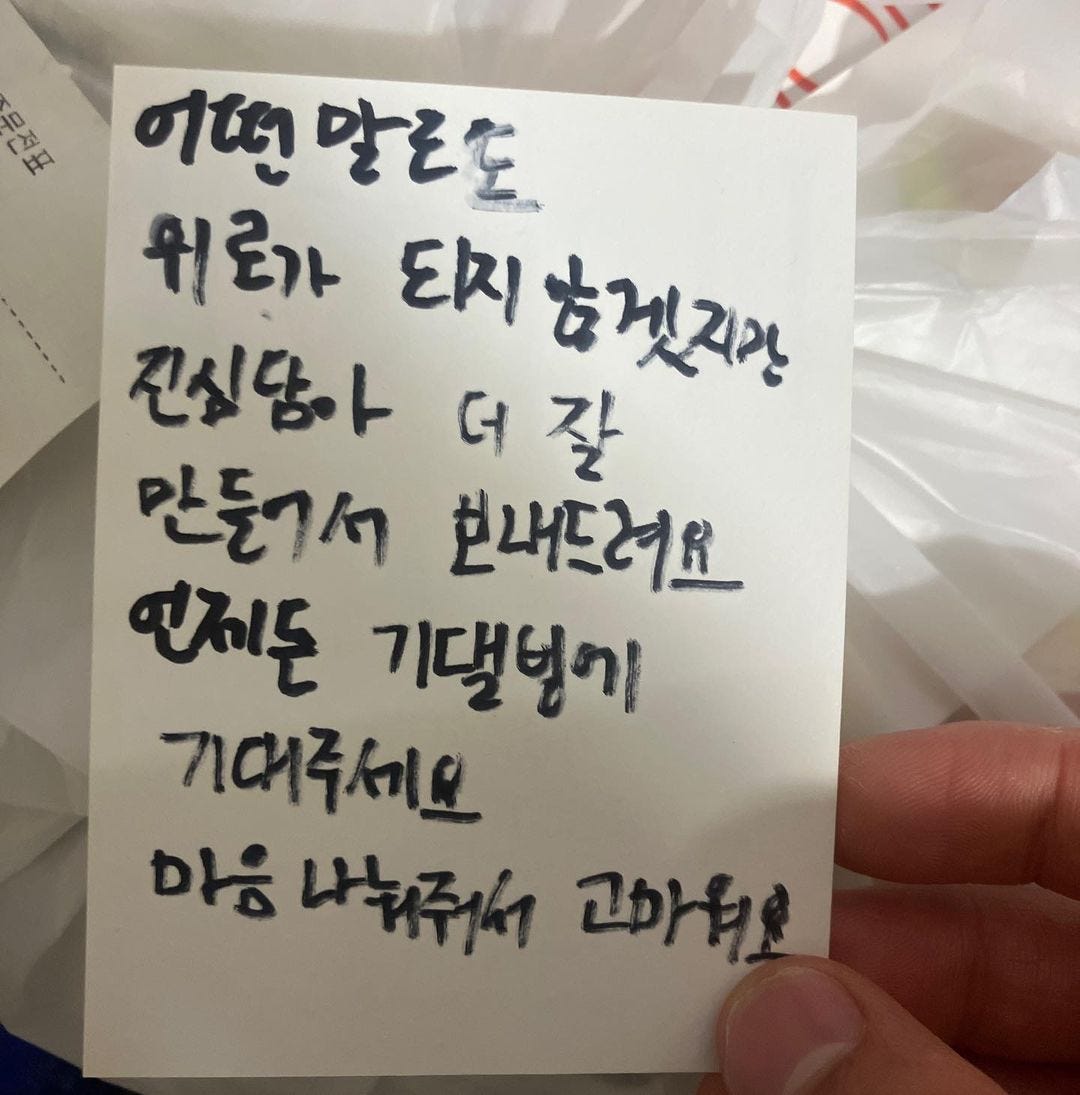 어떤 말로도
위로가 되지 않겠지만
진심담아 더 잘
만들어서 보내드려요
언제든 기댈벽에
기대주세요
마음 나눠줘서 고마워요
주문전표